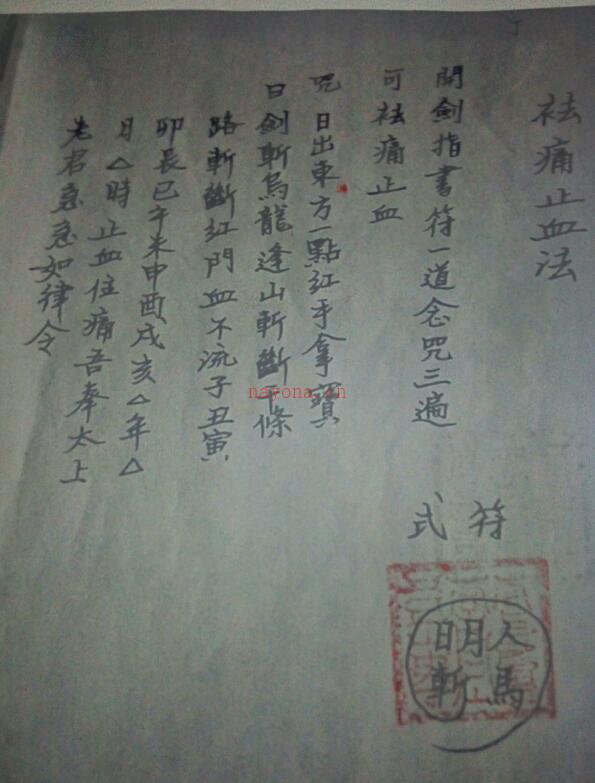 祛痛止血法
開劍指書符一道念咒三遍
可祛痛止血
咒日出東方一點紅手拿寶
曰劍斬烏龍逢山斬斷千條
路斬斷紅門血不流子丑寅
卯辰巳午未申酉戌亥△年△
月△時止血住痛吾奉太上
老君急急如律令
符式
人
斬馬
nayona.cn